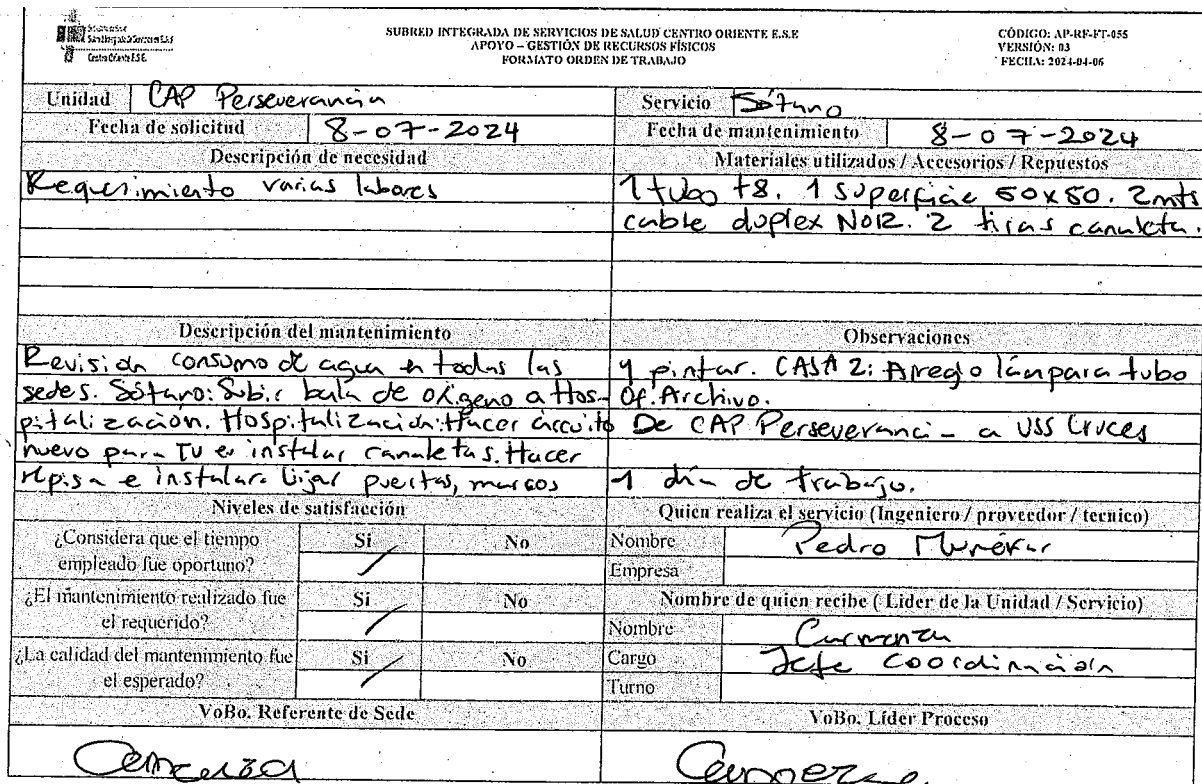 Centro Oriente E.S.E.
SUBRED INTEGRADA DE SERVICIOS DE SALUD CENTRO ORIENTE E.S.E
APOYO – GESTIÓN DE RECURSOS FÍSICOS
FORMATO ORDEN DE TRABAJO
CÓDIGO: AP-RF-FT-055
VERSIÓN: 03
FECHA: 2024-04-06
Unidad CAP Perseverancia
Servicio Sótano
Fecha de solicitud 8-07-2024
Fecha de mantenimiento 8-07-2024
Descripción de necesidad
Requerimiento varias labores
Materiales utilizados / Accesorios / Repuestos
1 tubo t8. 1 superficie 50x50. 2mts
cable duplex No12. 2 tiras canaleta.
Descripción del mantenimiento
Revisión consumo de agua en todas las
sedes. Sótano: Subir bala de oxigeno a Hos-
pitalización. Hospitalización: Hacer circuito
nuevo para TV e instalar canaletas. Hacer
repisa e instalar. Lijar puertas, marcos
Observaciones
y pintar. CASA 2: Arreglo lámpara tubo
Of. Archivo.
De CAP Perseverancia a USS Cruces
1 día de trabajo.
Niveles de satisfacción
¿Considera que el tiempo empleado fue oportuno? Si No
¿El mantenimiento realizado fue el requerido? Si No
¿La calidad del mantenimiento fue el esperado? Si No
Quien realiza el servicio (Ingeniero / proveedor / tecnico)
Nombre Pedro
Empresa
Nombre de quien recibe ( Lider de la Unidad / Servicio)
Nombre Carmenza
Cargo Jefe Coordinación
Turno
VoBo. Referente de Sede
Carmenza
VoBo. Líder Proceso